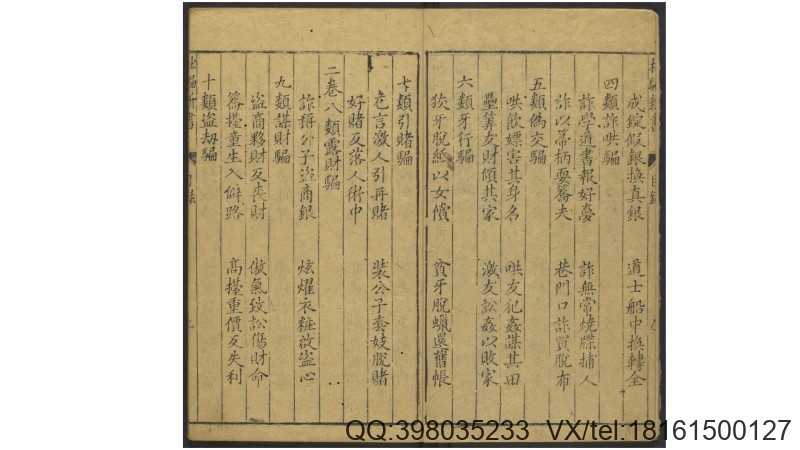 成錠假銀換真銀　道士船中換轉金
四類詐哄騙
詐學道書報好夢　詐無常燒牒捕人
詐以帚柄耍轎夫　巷門口詐買脫布
五類偽交騙
哄飲嫖害其身名　哄友犯姦謀其田
壘算友財傾其家　激友訟姦以敗家
六類牙行騙
狡牙脫紙以女償　貧牙脫蠟還舊帳
七類引賭騙
危言激人引再賭　裝公子套妓脫賭
好賭反落人術中
二卷八類露財騙
詐稱公子盜商銀　炫耀衣粧啟盜心
九類謀財騙
盜商夥財反喪財　傲氣致訟傷財命
轎擡童生入僻路　高擡重價反失利
十類盜劫騙
QQ:398035233 VX/tel:18161500127